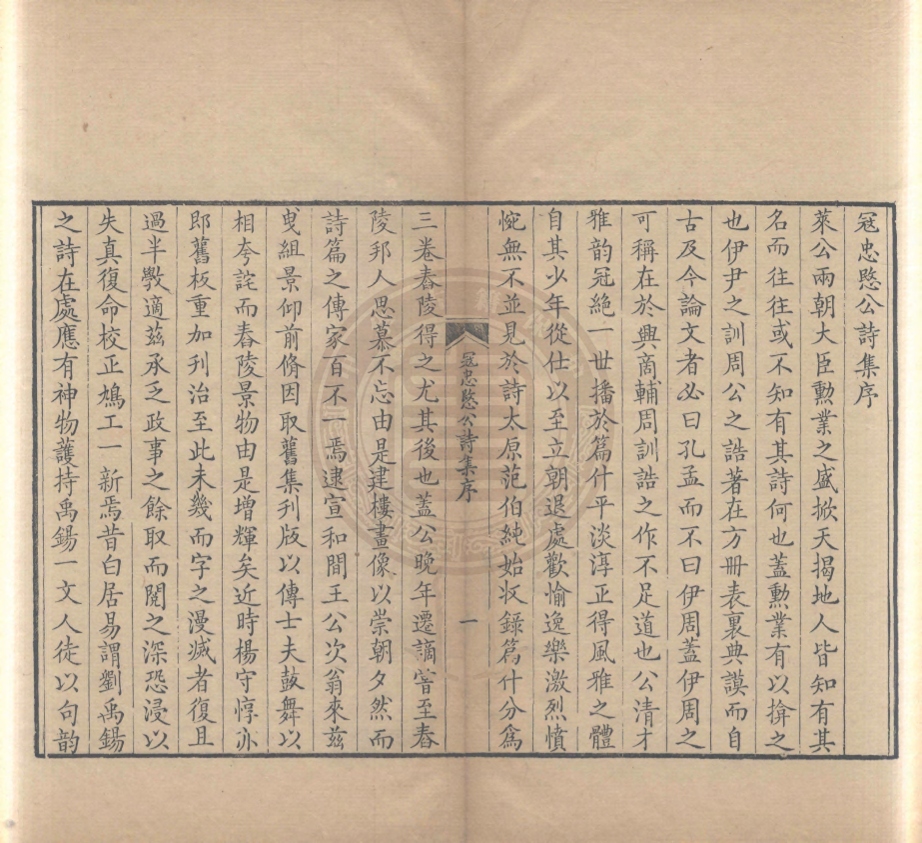 冦忠愍公詩集序
萊公兩朝大臣勲業之盛掀天揭地人皆知有其
名而往往或不知有其詩何也蓋勲業有以揜之
也伊尹之訓周公之誥著在方冊表裏典謨而自
古及今論文者必曰孔孟而不曰伊周蓋伊周之
可稱在於興商輔周訓誥之作不足道也公清才
雅韵冠絶一世播於篇什平淡淳正得風雅之體
自其少年從仕以至立朝退處歡愉逸樂激烈憤
惋無不並見於詩太原范伯純始収錄篇什分爲
冦忠愍公詩集序
一
三巻舂陵得之尤其後也蓋公晚年遷謫甞至舂
陵邦人思慕不忘由是建樓畫像以崇朝夕然而
詩篇之傳家百不一焉逮宣和間王公次翁來兹
曵組景仰前脩因取舊集刊版以傳士夫鼓舞以
相夸詫而舂陵景物由是增輝矣近時楊守惇亦
即舊板重加刋治至此未幾而字之漫滅者復且
過半斅適兹承乏政事之餘取而閱之深恐浸以
失真復命校正鳩工一新焉昔白居易謂劉禹錫
之詩在處應有神物護持禹錫一文人徒以句韵